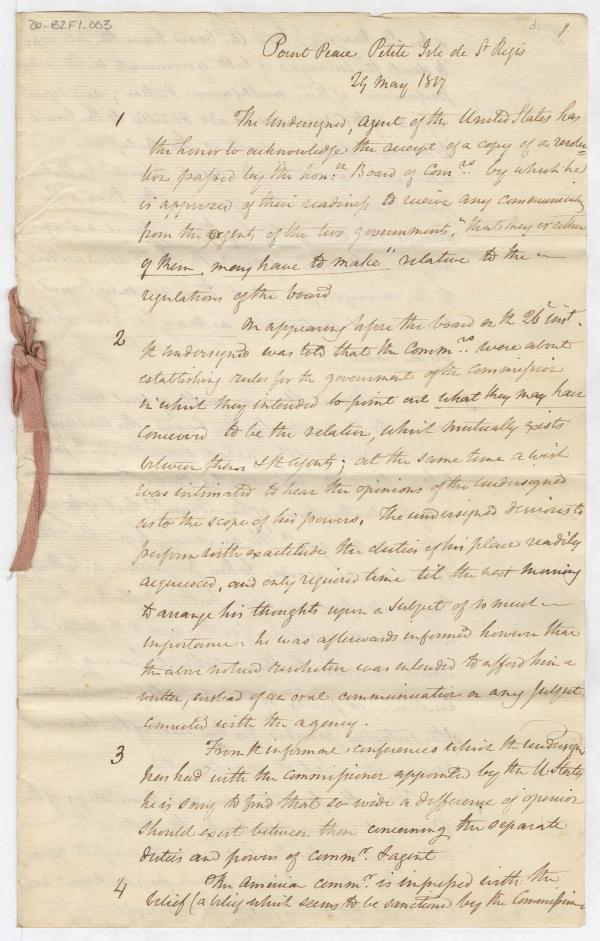 26-B2F1-003
d. 1
Point Peace Petite Isle de St Regis
29 May 1817
1 The Undersigned, agent of the United States has
the honor to acknowledge the receipt of a copy of a resolu=
tion passed by the hon: Board of Comrs. by which he
is apprized of their readiness to receive any communication
from the agents of the two governments, "that they or either
of them may have to make" relative to the
regulations of the board
2 On appearing before the board on the 26 inst.
the undersigned was told that the Commrs. were about
establishing rules for the government of the commission
in which they intended to point out what they may have
conceived to be the relation, which mutually exists
between them & the agents; at the same time a wish
was intimated to hear the opinions of the undersigned
as to the scope of his powers. The undersigned desirous to
perform with exactitude the duties of his place readily
acquiesced, and only required time til the next morning
to arrange his thoughts upon a subject of so much
importance. he was afterwards informed however that
the above noticed resolution was intended to afford him a
written, instead of an oral communication on any subject
connected with the agency.
3 From the informal conferences which the undersigned
has had with the commissioner appointed by the U. States
he is sorry to find that so wide a difference of opinion
should exist between them concerning the separate
duties and powers of commr. & agent
4 The American commr. is impressed with the
belief (a belief which seems to be sanctioned by the Commission